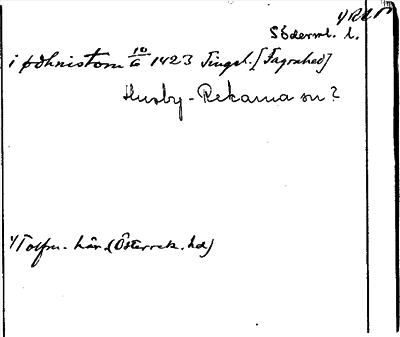 1) RAP
Söderml. l.
i øøhnistom 10/6 1423 Tingsl. [Fagrahed]
Husby-Rekarna sn?
1) Tolfm. här. (Österrek. hd)